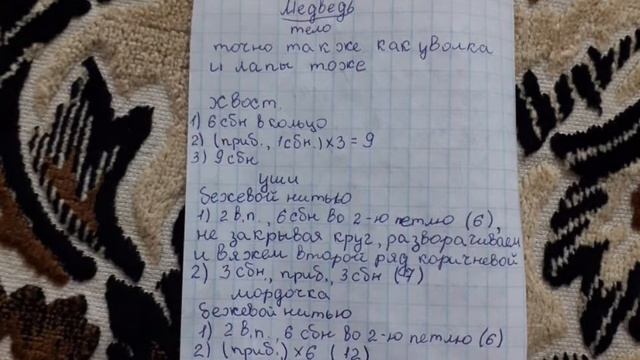 Медведь
тело
точно также как у волка
и лапы тоже
хвост.
1) 6 сбн в кольцо
2) (приб., 1 сбн.) х 3 = 9
3) 9 сбн
уши
бежевой нитью
1) 2 в.п., 6 сбн во 2-ю петлю (6),
не закрывая круг, разворачиваем
и вяжем второй ряд коричневой
2) 3 сбн, приб., 3 сбн (7)
мордочка
бежевой нитью
1) 2 в.п., 6 сбн во 2-ю петлю (6)
2) (приб.) х 6 (12)